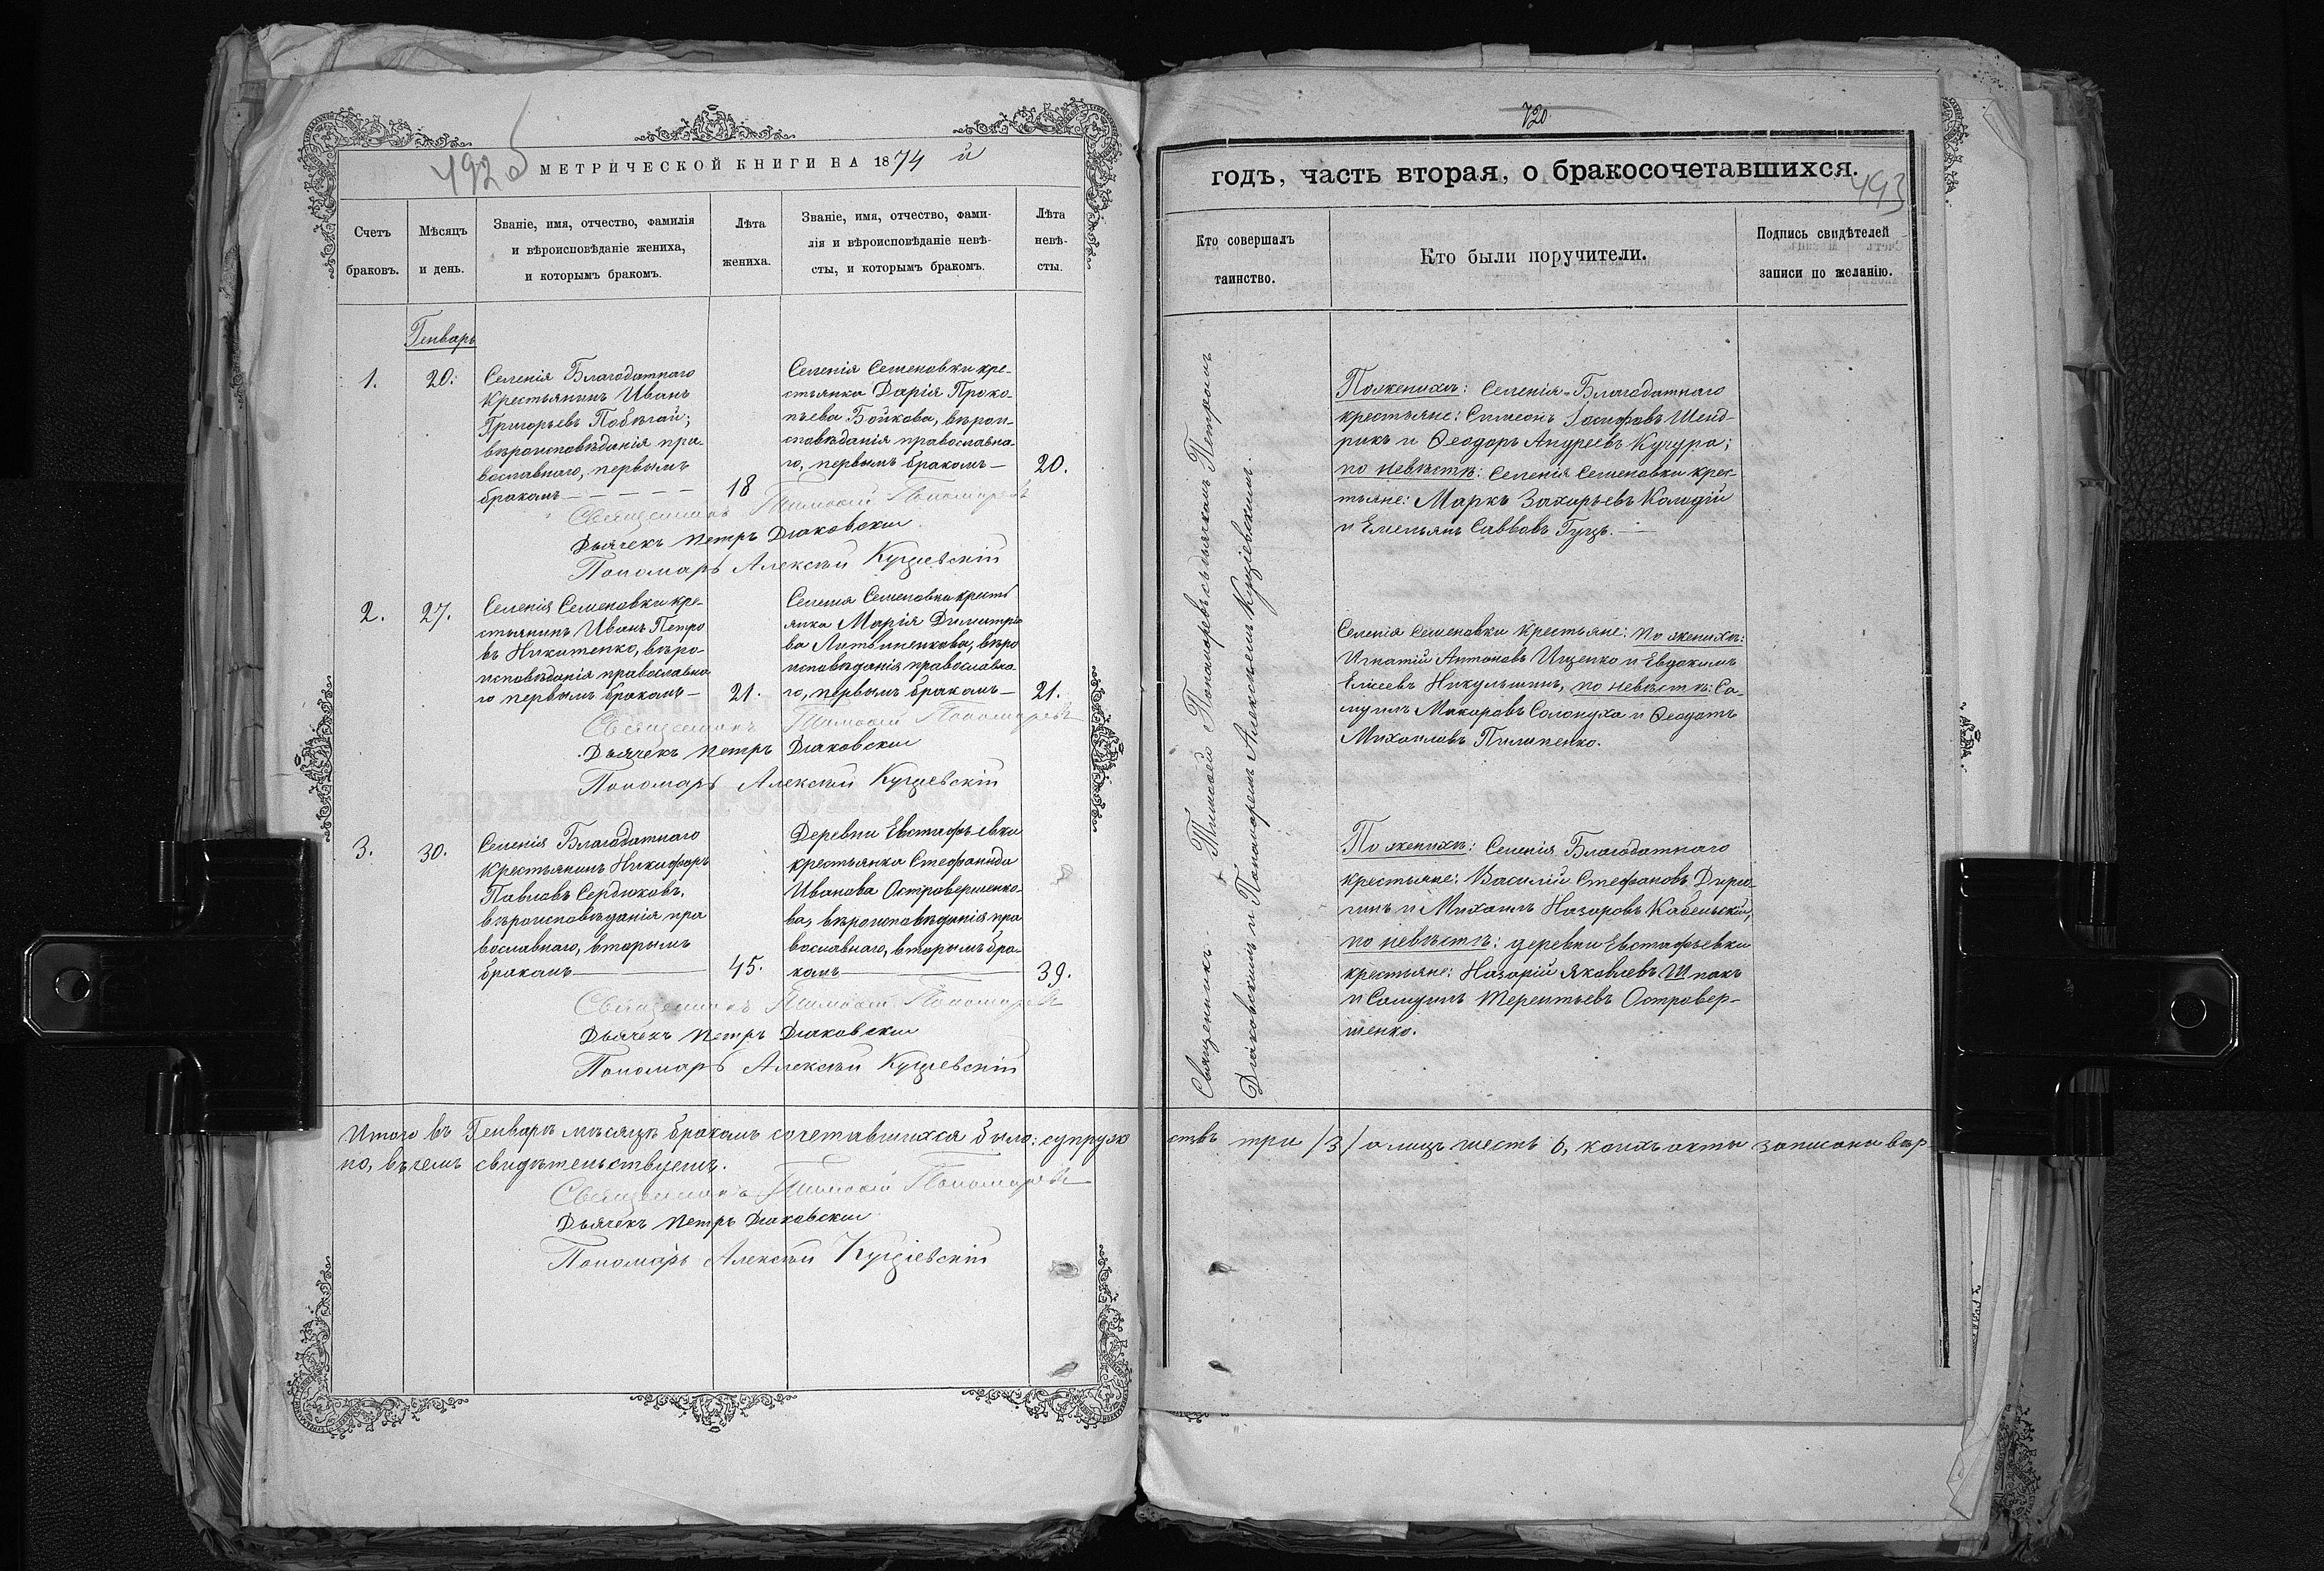 492 об
МЕТРИЧЕСКОЙ КНИГИ НА 1874 й
Счетъ
браковъ.
Мѣсяцъ
и день.
Званіе, имя, отчество, фамилія
и вѣроисповѣданіе жениха,
и которымъ бракомъ.
Лѣта
жениха.
Званіе, имя, отчество, фами-
лія и вѣроисповѣданіе невѣ-
сты, и которымъ бракомъ.
Лѣта
невѣ-
сты.
Генварь
1.
20.
Селенія Благодатнаго
крестьянинъ Иванъ
Григорьевъ Побѣгай;
вѣроисповѣданія пра-
вославнаго, первымъ
бракомъ
18
Селенія Семеновки кре-
стьянка Дарія Проко-
пьева Бойкова, вѣрои-
сповѣданія православна-
го, первымъ бракомъ —
20.
Священникъ Тимоѳей Пономаревъ
Дьячекъ Петръ Діаковскій
Пономарь Алексѣй Кущіевскій
2.
27.
Селенія Семеновки кре-
стьянинъ Иванъ Петро
въ Никитенко, вѣро-
исповѣданія православна
го первымъ бракомъ —
21.
Селенія Семеновки кресть
янка Марія Димитріе
ва Литвиненкова, вѣро
исповѣданія православна
го, первымъ бракомъ —
21.
Священникъ Тимоѳей Пономаревъ
Дьячекъ Петръ Діаковскій
Пономарь Алексѣй Кущіевскій
3.
30.
Селенія Благодатнаго
крестьянинъ Никифоръ
Павловъ Сердюковъ,
вѣроисповѣданія пра
вославнаго, вторымъ
бракомъ
45.
Деревни Евстафьевки
крестьянка Стефанида
Иванова Островершенко-
ва, вѣроисповѣданія пра
вославнаго, вторымъ бра-
комъ
39.
Священникъ Тимоѳей Пономаревъ
Дьячекъ Петръ Діаковскій
Пономарь Алексѣй Кущіевскій
Итого въ Генварѣ мѣсяцѣ бракомъ сочетавшихся было: супруже
но, въ чемъ свидѣтельствуемъ.
Священникъ Тимоѳей Пономаревъ
Дьячекъ Петръ Діаковскій
Пономарь Алексѣй Кущіевскій
720
годъ, часть вторая, о бракосочетавшихся.
493
Кто совершалъ
таинство.
Кто были поручители.
Подпись свидѣтелей
записи по желанію.
Священникъ Тимоѳей Пономаревъ съ дьячкомъ Петромъ
Діаковскимъ и Пономаремъ Алексѣемъ Кущіевскимъ.
По женихѣ: Селенія Благодатнаго
крестьяне: Симеонъ Іосифовъ Шенд-
рикъ и Ѳеодоръ Андреевъ Кучура;
по невѣстѣ: Селенія Семеновки крес-
тьяне: Маркъ Захарьевъ Колодій
и Емельянъ Саввовъ Гуцъ. —
Селенія Семеновки крестьяне: по женихѣ:
Игнатій Антоновъ Ищенко и Евдокимъ
Елисеевъ Никульшинъ, по невѣстѣ: Са-
муилъ Макаровъ Солопуха и Ѳеодотъ
Михаиловъ Пилипенко.
По женихѣ: Селенія Благодатнаго
крестьяне: Василій Стефановъ
и Михаилъ Назаровъ Кобельскій,
по невѣстѣ: деревни Евстафьевки
крестьяне: Назарій Яковлевъ Шпакъ
и Самуилъ Терентьевъ Островер-
шенко.
ствъ три /3/ а лицъ шесть 6, коихъ акты записаны вѣр-